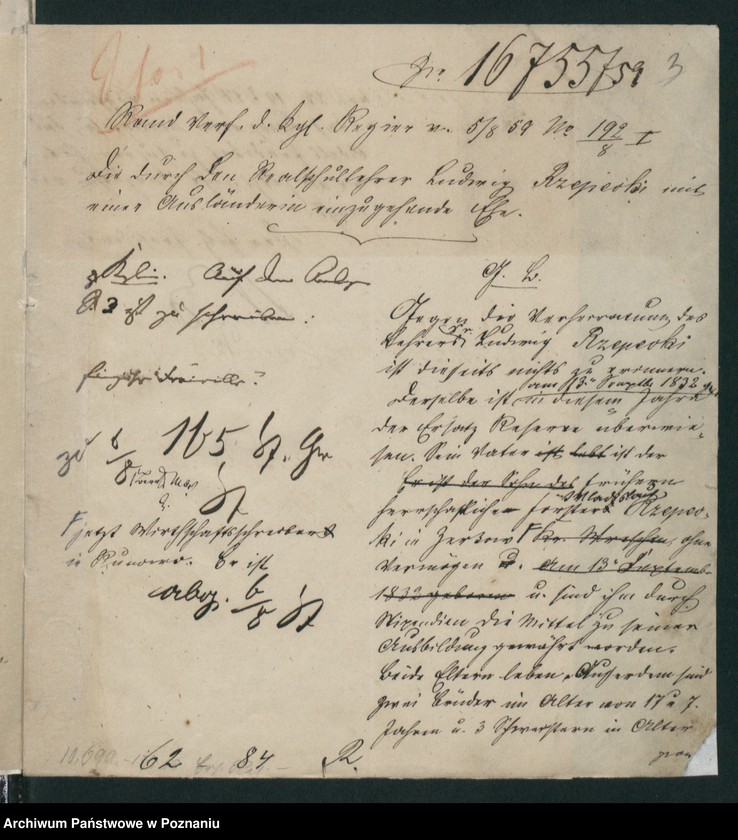 No. 16755/59 3
Rand Verf. d. Kgl. Regier v. 5/8 59 No 192/8 I
Die durch den Realschullehrer Ludwig Rzepecki mit
einer Ausländerin einzugehende Ehe.
Auf den
ist zu schreiben:
zu 6/8 165
jetzt Wirthschaftsschreiber
in Runowo. Er ist
abg. 6/8
G. B.
Gegen die Verheiratung des
Lehrers Dr Ludwig Rzepecki
ist dieseits nichts zu erinnern.
Derselbe ist am 13ten Septb 1832 geb.
in diesem Jahre
der Ersatz Reserve überwie-
sen. Sein Vater ist lebt ist der
Er ist der Sohn des frühern
herrschaftlichen Försters Wladislaus Rzepec-
ki in Zerkow Kr. Wreschen, ohne
Vermögen u. am 13ten Septemb
1832 geboren u. sind ihm durch
Stipendien die Mittel zu seiner
Ausbildung gewährt worden.
Beide Eltern leben. Außerdem sind
zwei Brüder im Alter von 17 u 7.
Jahren u. 3 Schwestern im Alter
von
62 84 R.
Archiwum Państwowe w Poznaniu